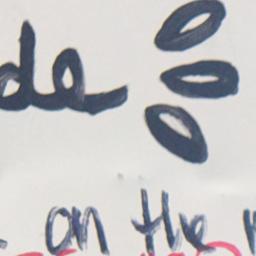 de
on the